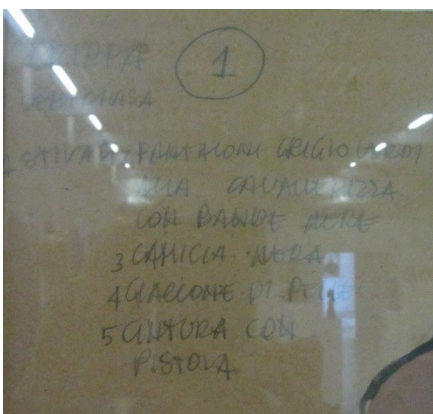 GRIPPA
1
STIVALI - PANTALONI GRIGIO VERDI
ALLA CAVALLERIZZA
CON BANDE NERE
3 CAMICIA NERA
4 GIACCONE DI PELLE
5 CINTURA CON
PISTOLA